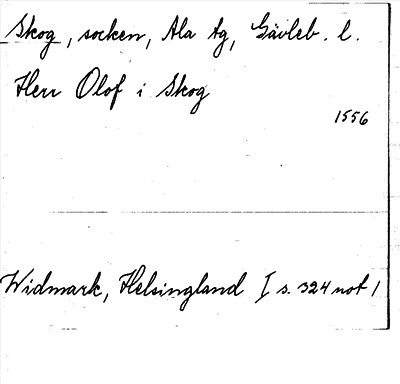 Skog, socken, Ala tg, Gävleb. l.
Herr Olof i Skog
1556
Widmark, Helsingland I s. 324 not 1